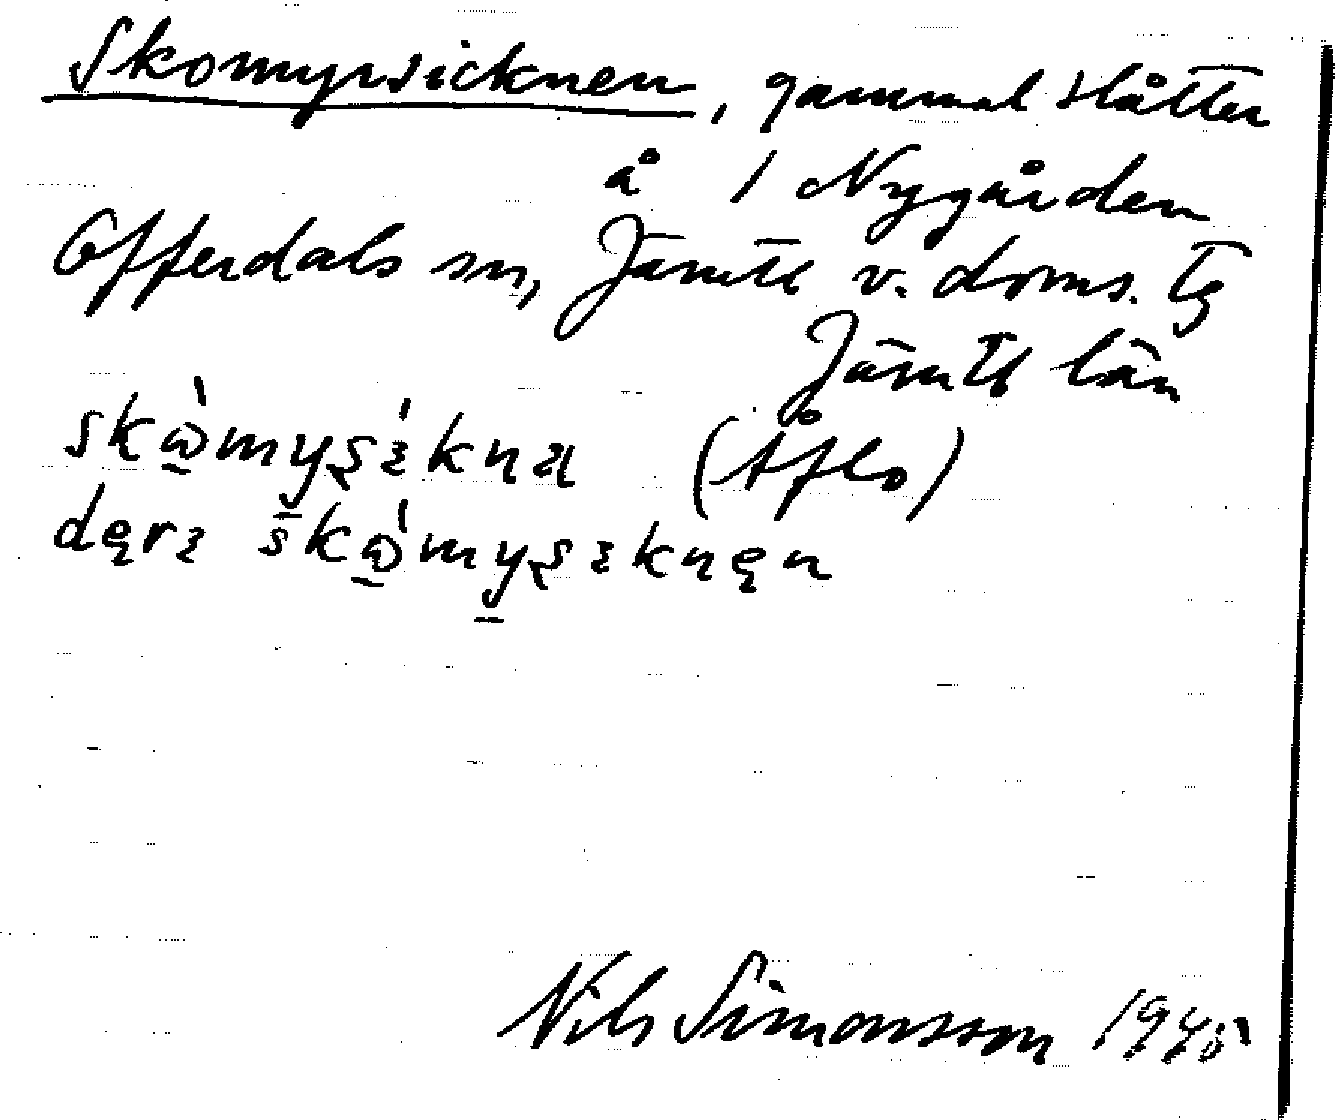 Skomyrsicknen, gammal slåtter
å 1 Nygården
Offerdals sn, Jämtl v. doms. tg
Jämtl län
skɷ̀myʂɛ́knɑ (Åflo)
dęrɛ skɷ́myʂɛknęn
Nils Simonsson 1945